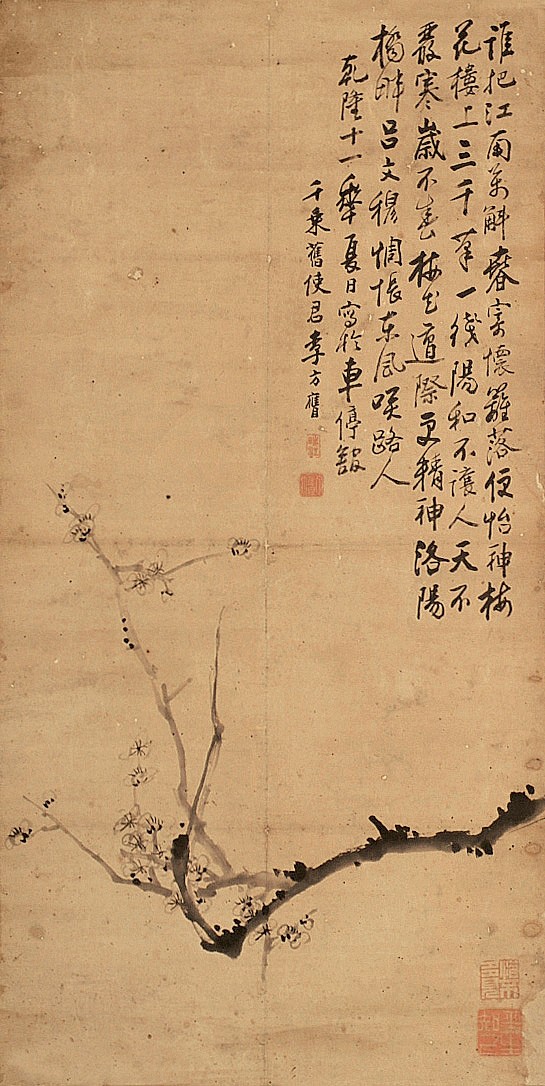 誰把江南萬斛春寄懷籬落便怡神梅
花樓上三千筆一綫陽和不讓人天不
嚴寒歲不春梅花遭際更精神洛陽
橋畔呂文穆惆悵東風咲路人
乾隆十一年夏日寫於車停館
千乘舊使君李方膺